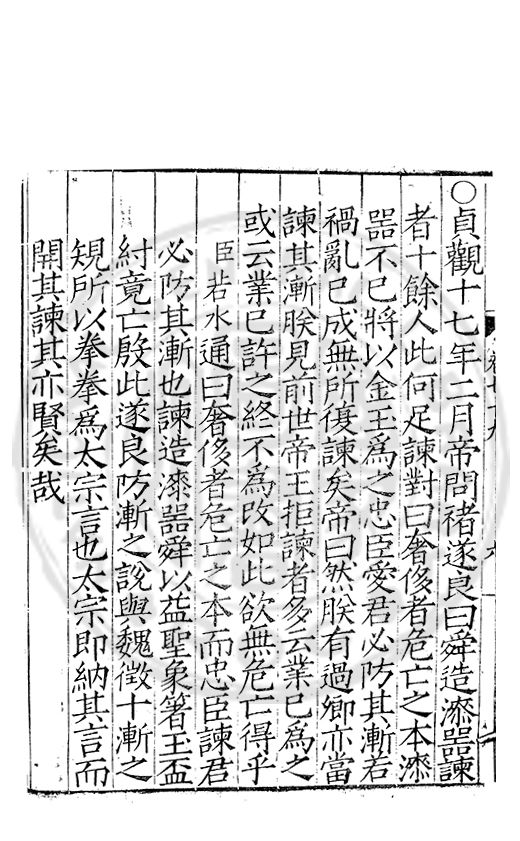 ○貞觀十七年二月帝問禇遂良曰舜造漆器諫
者十餘人此何足諫對曰奢侈者危亡之本漆
器不已將以金玉爲之忠臣愛君必防其漸若
禍亂已成無所復諫矣帝曰然朕有過卿亦當
諫其漸朕見前世帝王拒諫者多云業已爲之
或云業已許之終不爲改如此欲無危亡得乎
臣若水通曰奢侈者危亡之本而忠臣諫君
必防其漸也諫造漆器舜以益聖象箸玉盃
紂竟亡殷此遂良防漸之說與魏徵十漸之
規所以拳拳爲太宗言也太宗即納其言而
開其諫其亦賢矣哉